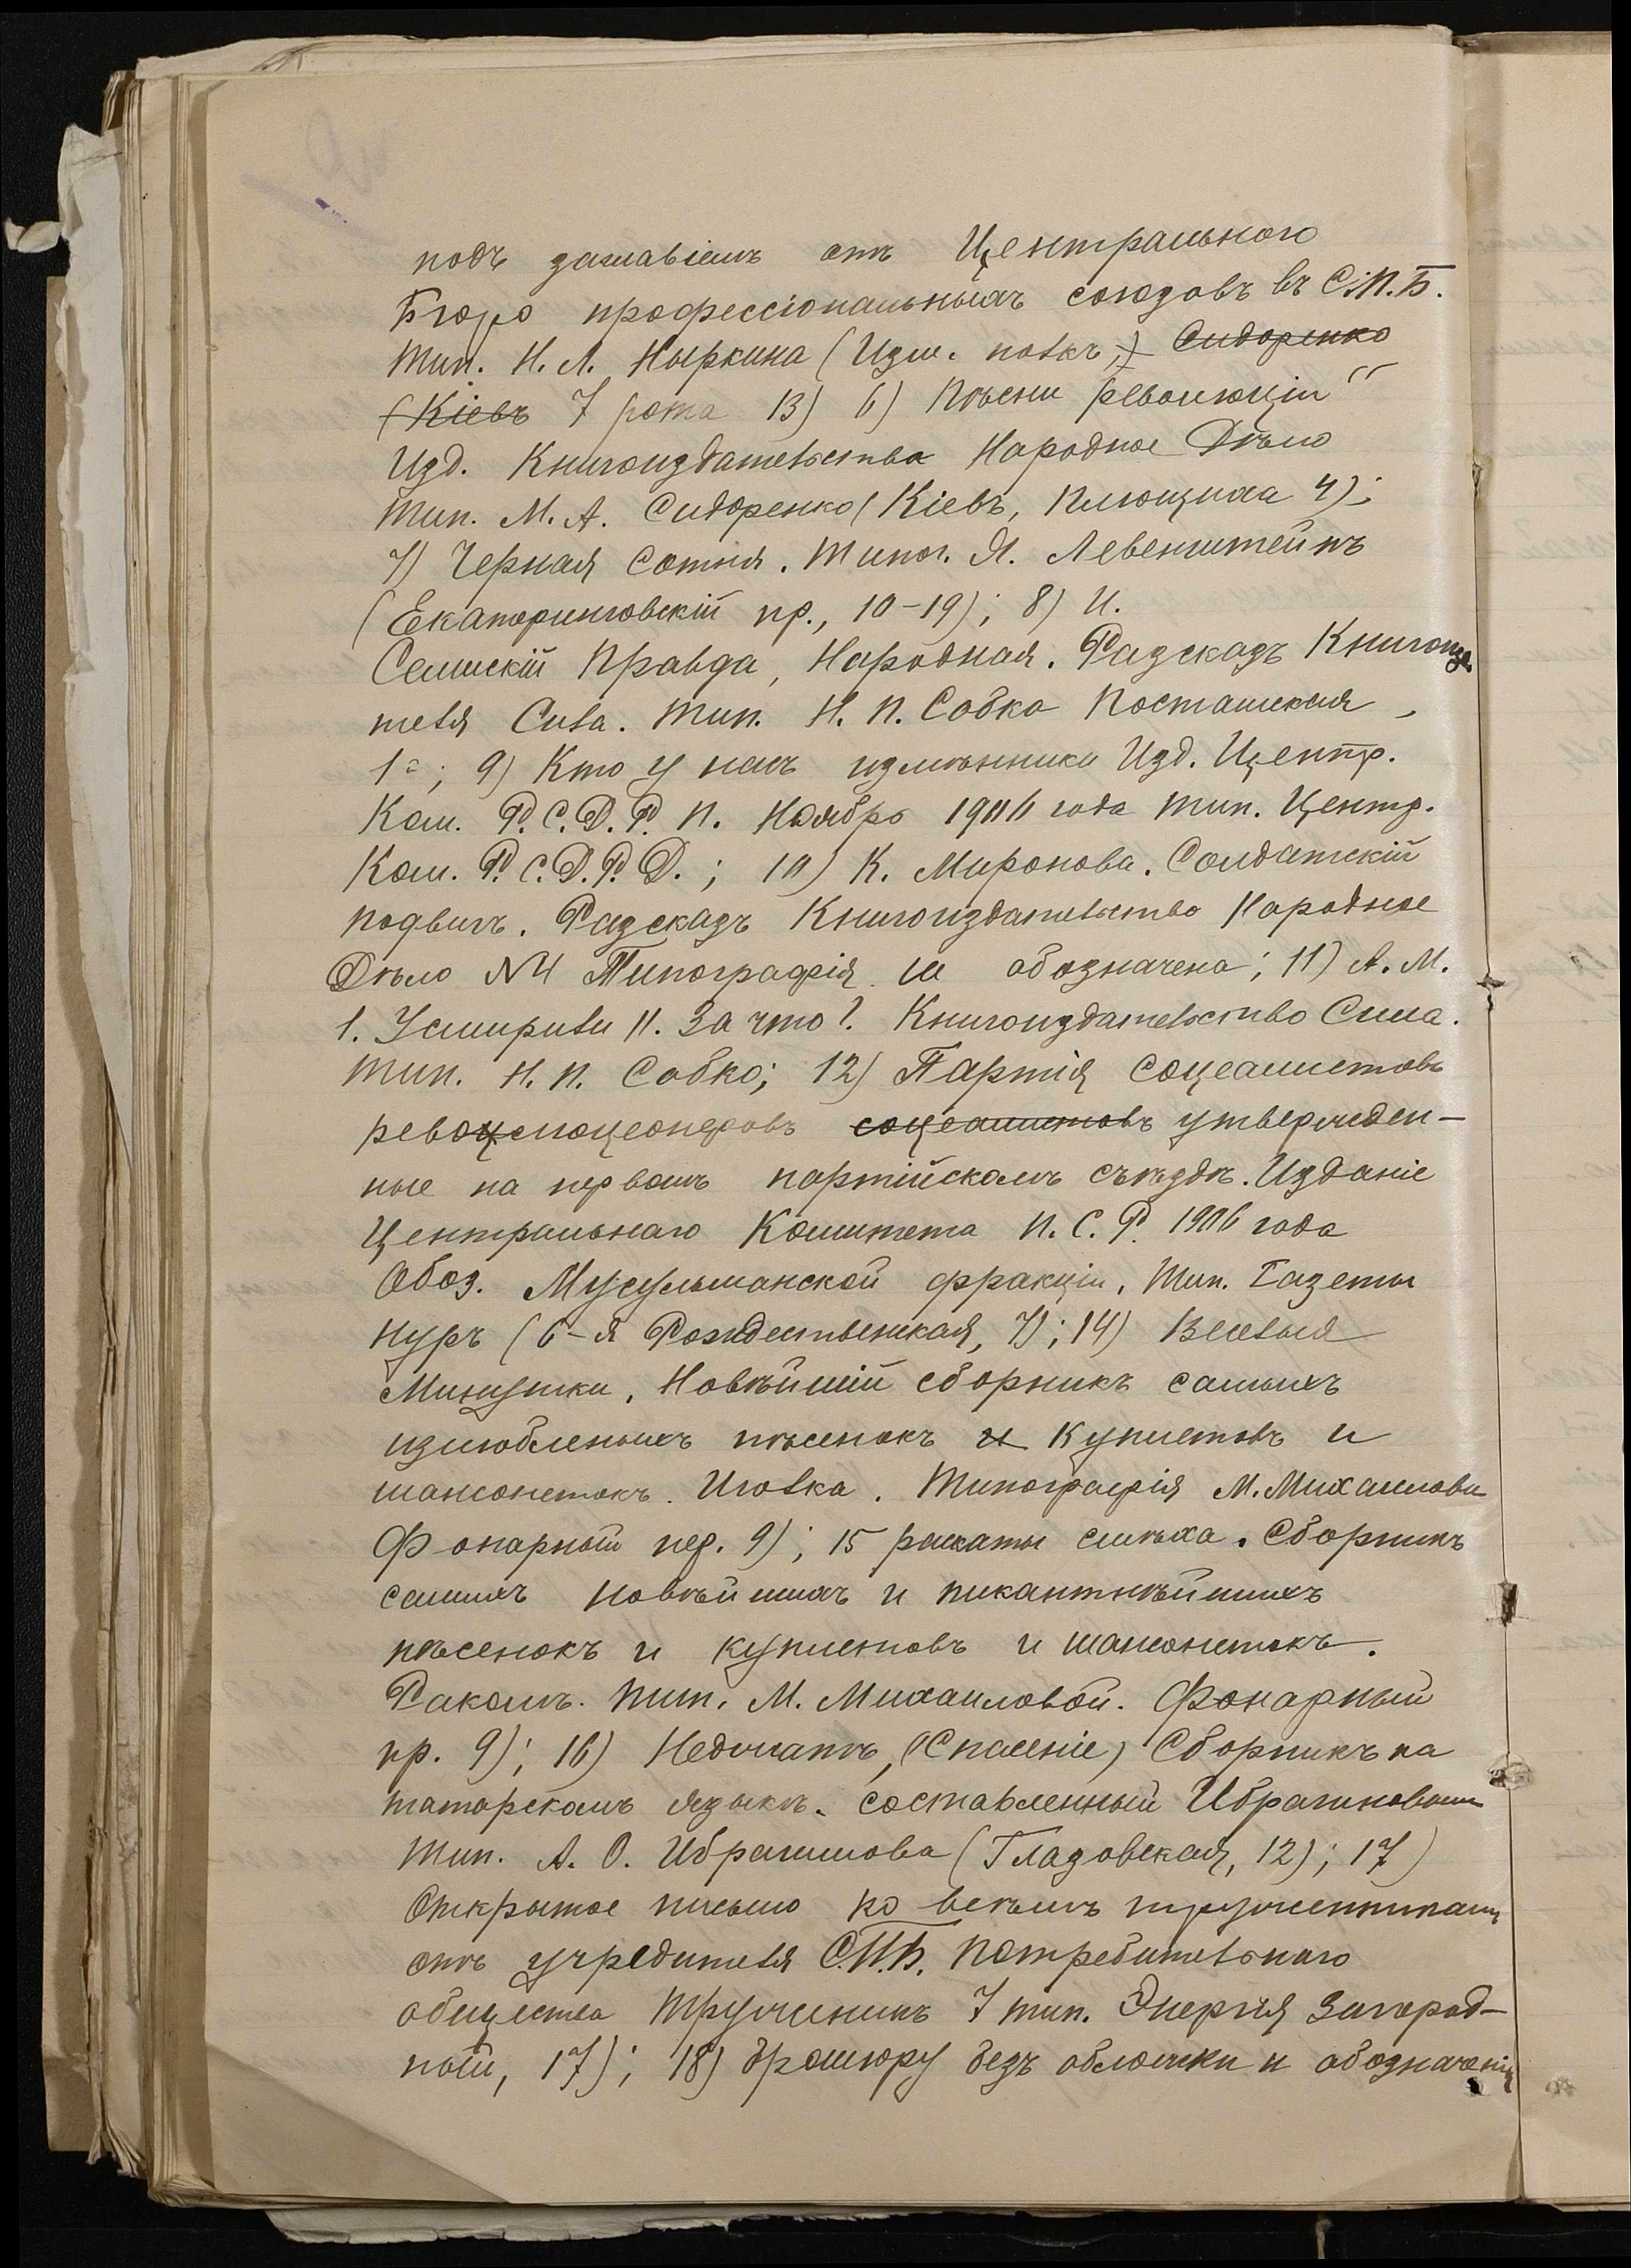 подъ заглавіемъ отъ Центральнаго
Бюро профессіональныхъ союзовъ въ С.П.Б.
Тип. Н. Л. Ныркина (Изм. полкъ,) Сидоренко
(Кіевъ 7 рота 13) 6) Пѣсни революціи"
Изд. Книгоиздательства Народное Дѣло
Тип. М. А. Сидоренко (Кіевъ, Плющиха 4);
7) Черная Сотня. Типог. Я. Левенштейнъ
(Екатерингофскій пр., 10-19); 8) И.
Правда, Народная. Разсказъ Книгоизда
теля Сила. Тип. Н. П. Собко
1а; 9) Кто у насъ измѣнники Изд. Центр.
Ком. Р.С.Д.Р.П. Ноябрь 1906 года тип. Центр.
Ком. Р.С.Д.Р.Д.; 10) К. Миронова. Солдатскій
подвигъ. Разсказъ Книгоиздательство Народное
Дѣло №4 Типографія не обозначена; 11) А. М.
1. Усмирили 11. За что?. Книгоиздательство Сила.
Тип. Н. П. Собко; 12) Партія соцеалистовъ
революцеонеровъ соцеалистовъ утвержден-
ные на первомъ партійскомъ съѣздѣ. Изданіе
Центральнаго Комитета П.С.Р. 1906 года
Обоз. Мусульманской фракціи, Тип. Газеты
Нуръ (6-я Рождественская, 7); 14) Веселыя
Минутки, Новѣйшій сборникъ самыхъ
излюбленыхъ пѣсенокъ и куплетовъ и
шансонетокъ. Иголка. Типографія М. Михаиловы
Фонарный пер. 9); 15 раскаты смѣха. Сборникъ
самыхъ новѣйшихъ и пикантнѣйшихъ
пѣсенокъ и куплетовъ и шансонетокъ.
Тип. М. Михаиловой. Фонарный
пр. 9); 16) Недожатъ, (Спасеніе) Сборникъ на
татарскомъ языкѣ. составленный Ибрагимовымъ
Тип. А. О. Ибрагимова (Глазовская, 12); 17)
Открытое письмо ко всѣмъ труженникамъ
отъ учредителя С.П.Б. Потребительнаго
общества Труженикъ 7 тип. Энергія Загород-
ный, 17); 18) брошюру безъ обложки и обозначенія